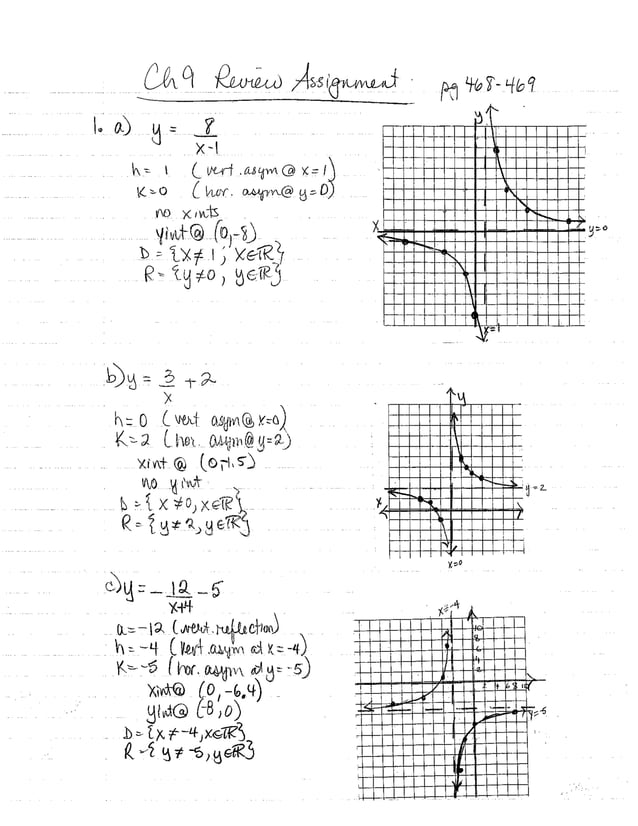 Ch 9 Review Assignment pg 468-469
1. a) y = 8/(x-1)
h = 1 (vert. asym @ x=1)
K=0 (hor. asym @ y=0)
no xints
yint @ (0,-8)
D = {x≠1, x∈ℝ}
R = {y≠0, y∈ℝ}
y
x
y=0
x=1
b) y = 3/x + 2
h=0 (vert asym @ x=0)
K=2 (hor. asym @ y=2)
xint @ (0,-1.5)
no yint
D = { x≠0, x∈ℝ}
R = {y≠2, y∈ℝ}
y
y=2
x
x=0
c) y = - 12/(x+4) - 5
a = -12 (vert. reflection)
h = -4 (vert. asym at x = -4)
K = -5 (hor. asym at y = -5)
xint @ (0, -6.4)
yint @ (-8, 0)
D = {x≠-4, x∈ℝ}
R = { y≠-5, y∈ℝ}
x=-4
10
8
6
4
2
2 4 6 8 10
y=-5